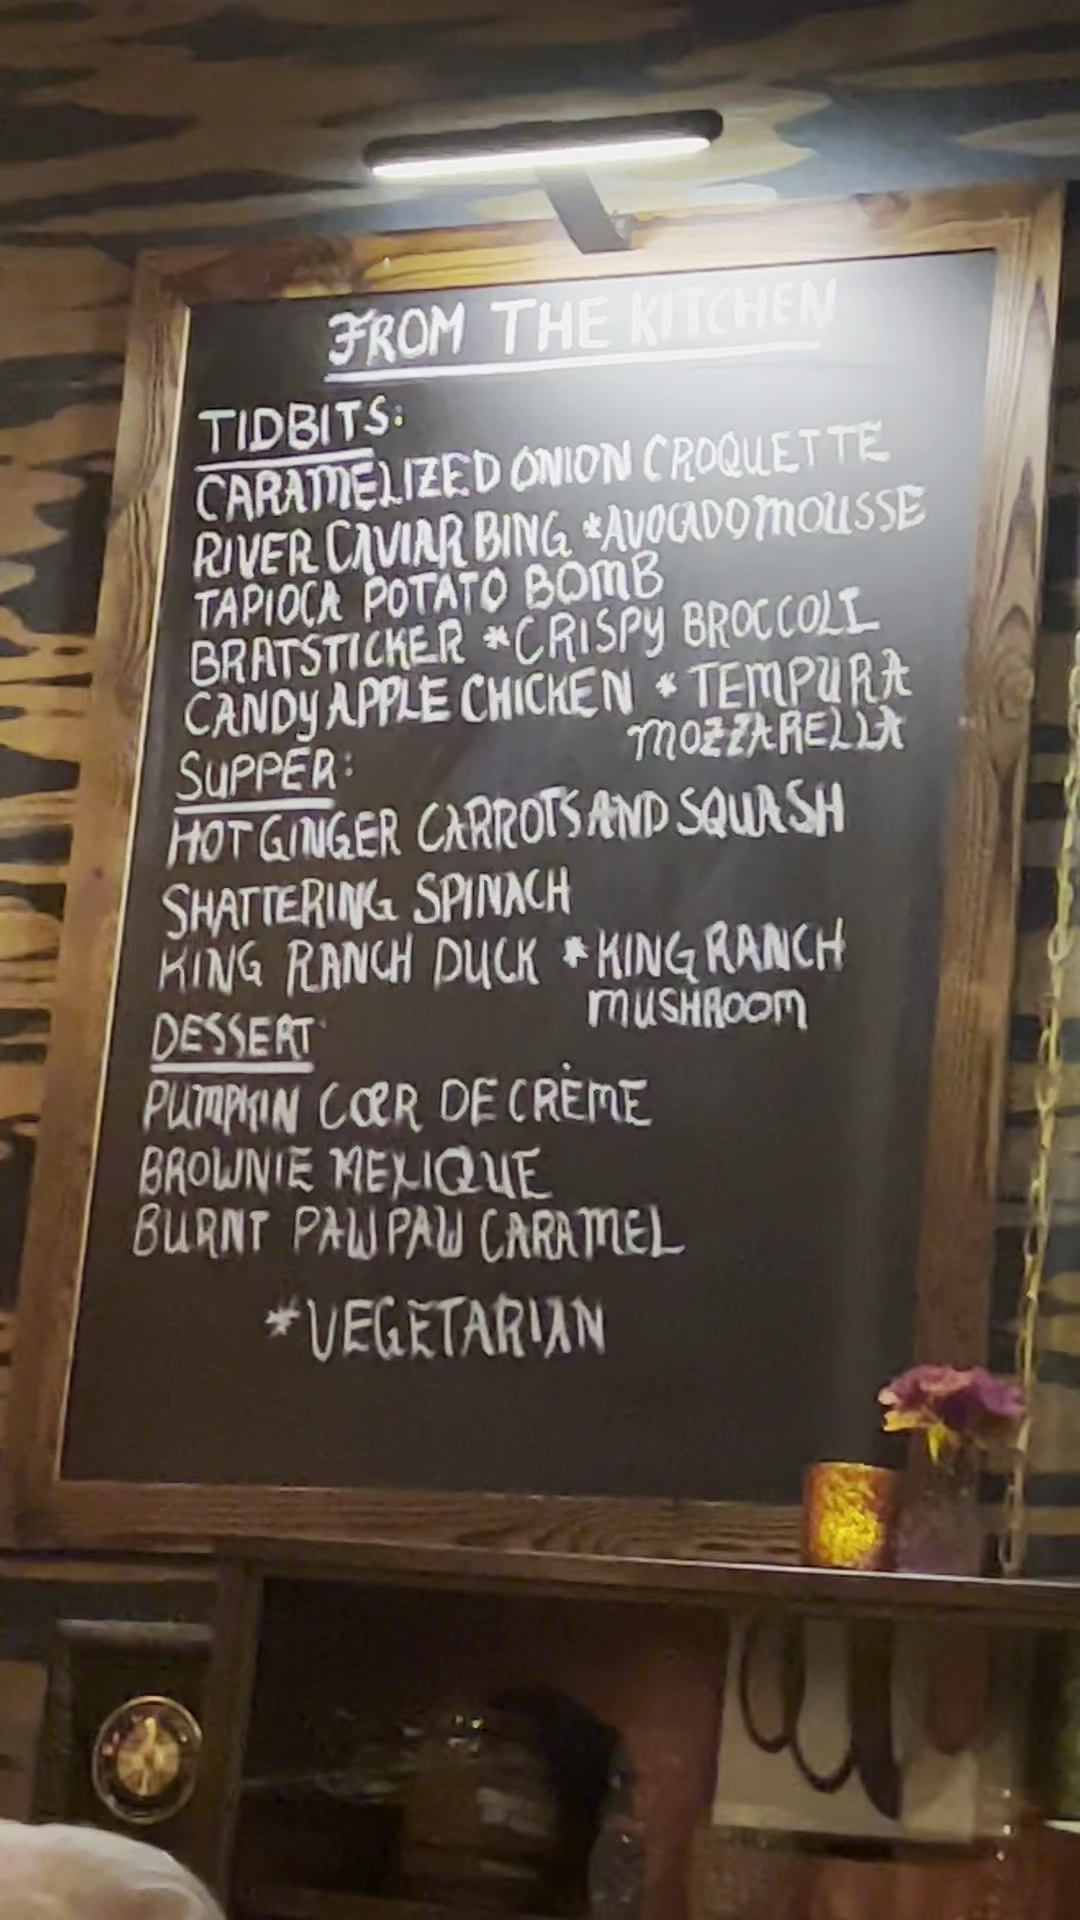 FROM THE KITCHEN
TIDBITS:
CARAMELIZED ONION CROQUETTE
RIVER CAVIAR BING *AVOCADO MOUSSE
TAPIOCA POTATO BOMB
BRATSTICKER *CRISPY BROCCOLI
CANDY APPLE CHICKEN * TEMPURA
MOZZARELLA
SUPPER:
HOT GINGER CARROTS AND SQUASH
SHATTERING SPINACH
KING RANCH DUCK *KING RANCH
MUSHROOM
DESSERT:
PUMPKIN CŒR DE CRÈME
BROWNIE MEXIQUE
BURNT PAWPAW CARAMEL
*VEGETARIAN